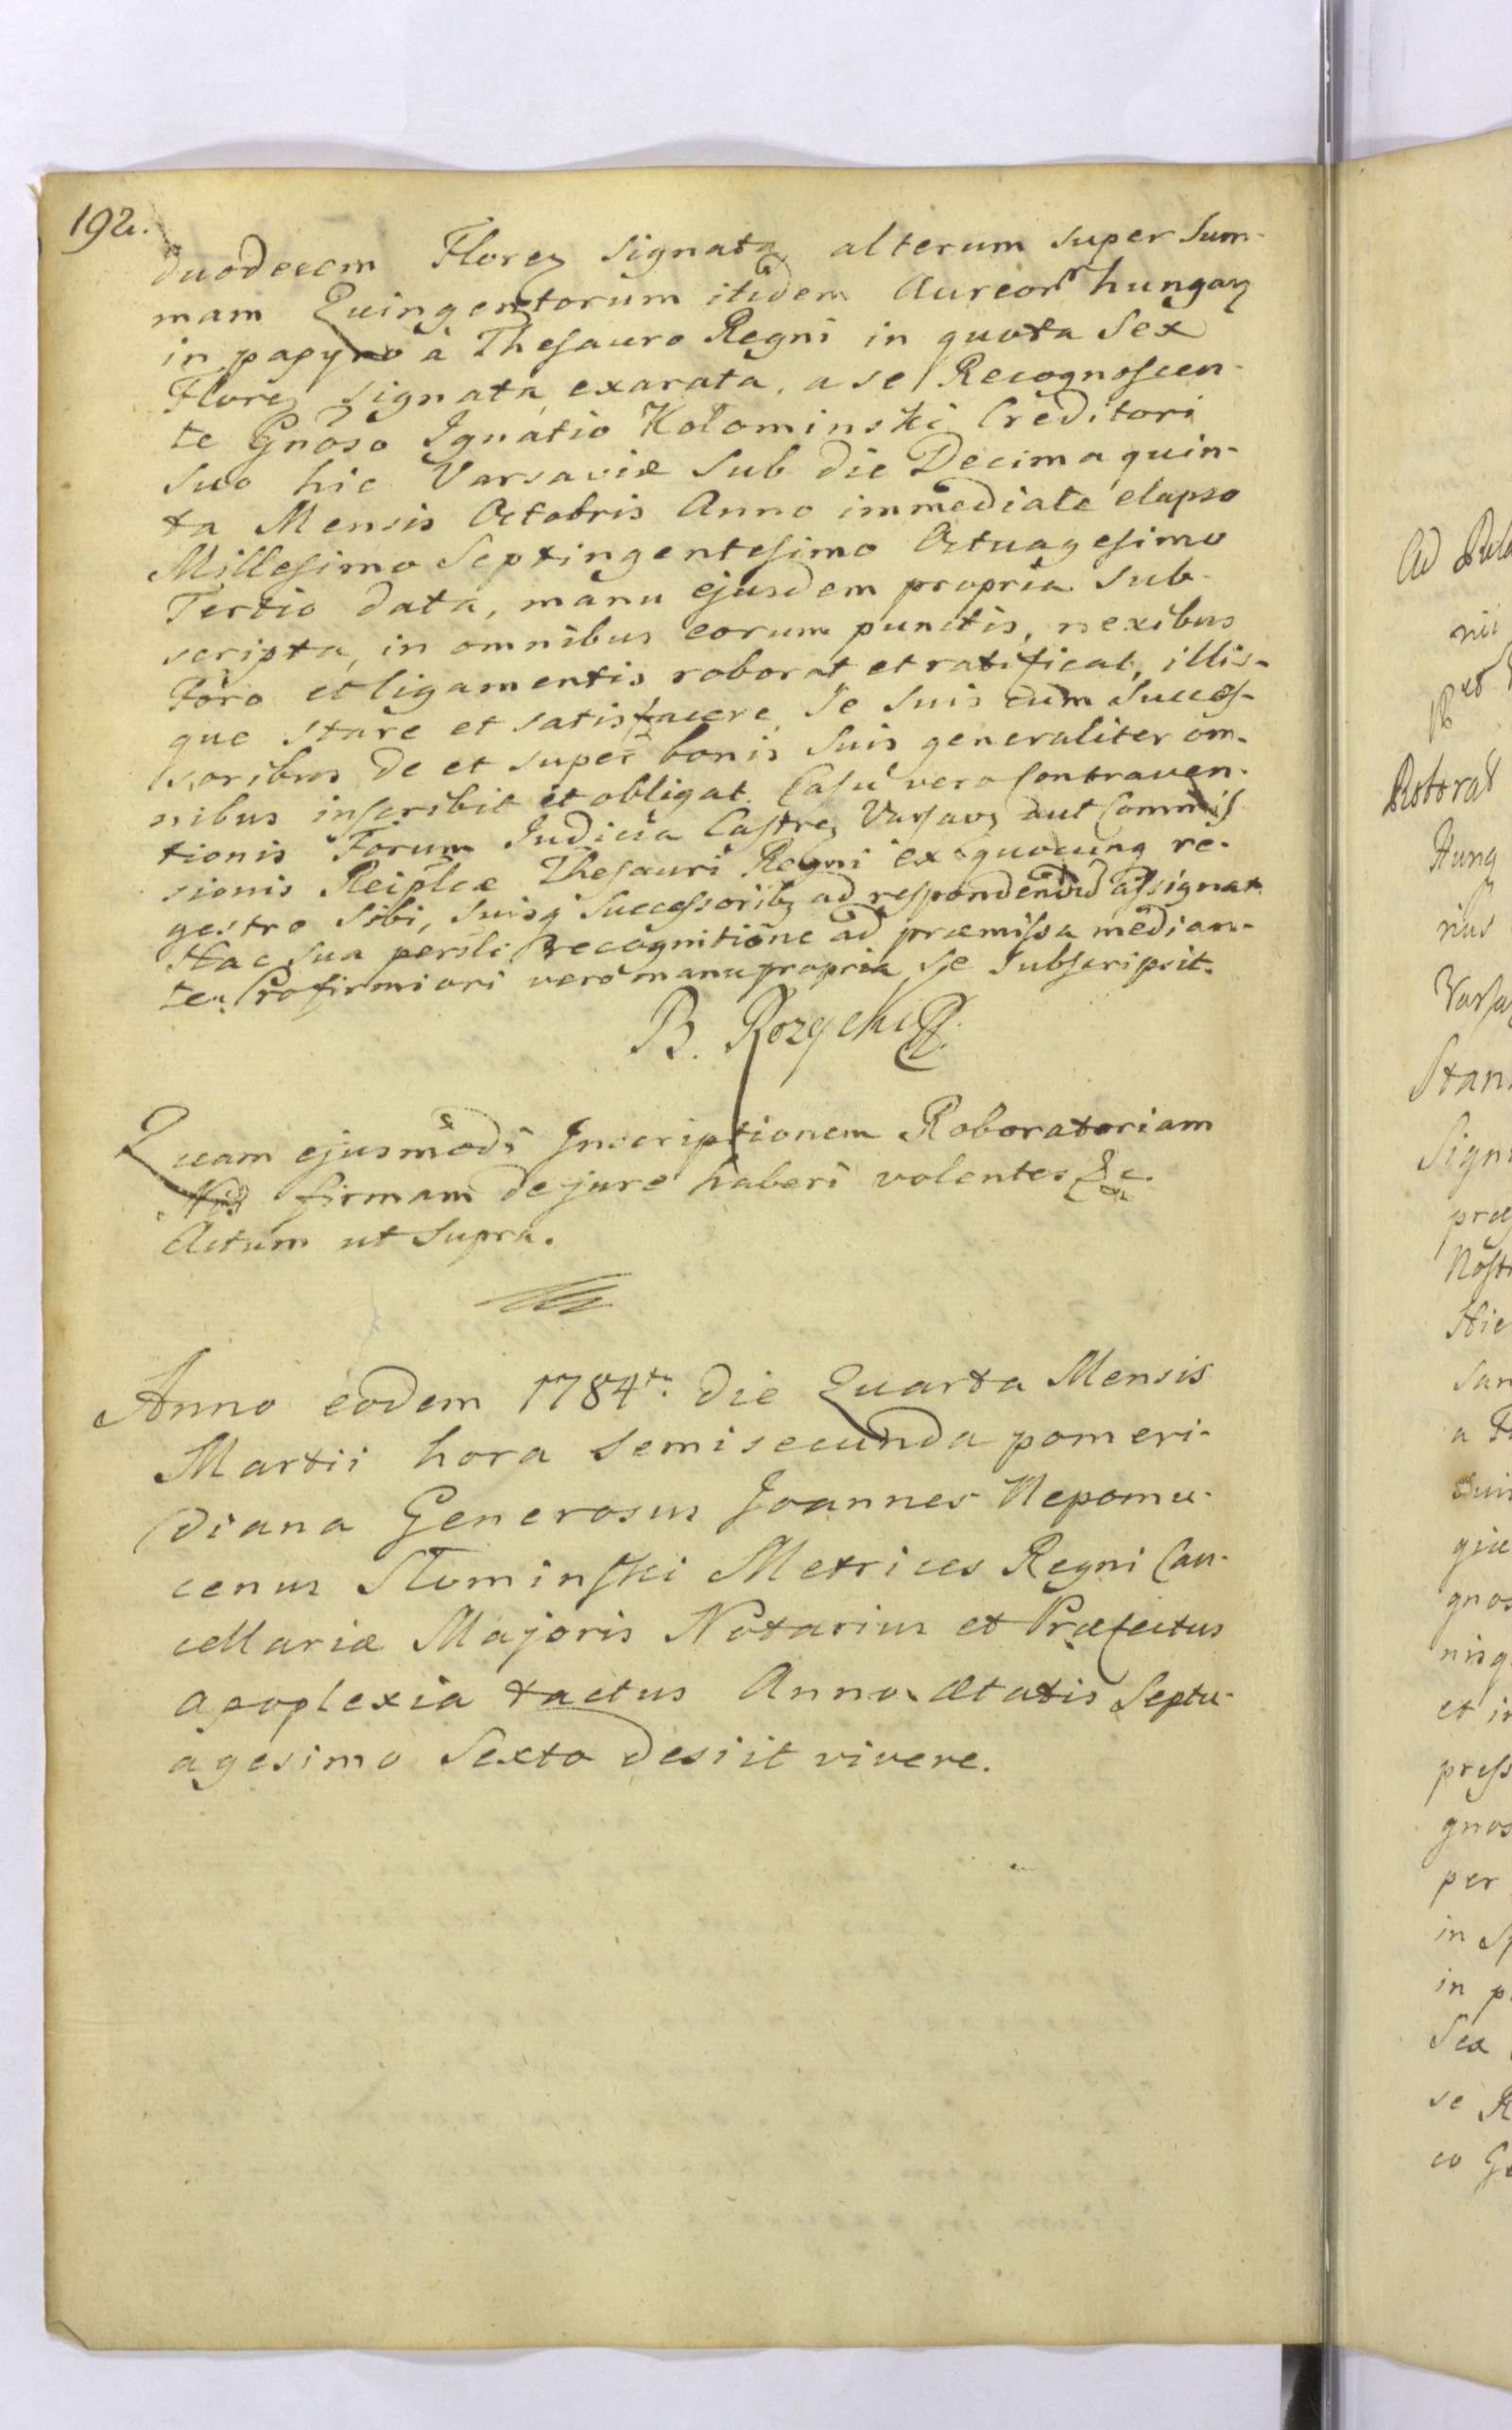 192.
duodecem Florez signata, alterum super Sum-
mam Quingentorum itidem Aureor hungarz
in papyro à Thesauro Regni in quota Sex
Florez signata exarata, a se Recognoscen-
te Gnoso Ignatio Kołominski Creditori
suo hic Varsaviæ sub die Decima quin-
ta Mensis Octobris Anno immediate elapso
Millesimo Septingentesimo Octuagesimo
Tertio data, manu ejusdem propria sub-
scripta, in omnibus eorum punctis, nexibus
Foro et ligamentis roborat et ratificat, illis-
que stare et satisfacere se suis cum succes-
soribus de et super bonis suis generaliter om-
nibus inscribit et obligat. Casu vero Contraven-
tionis Forum Judicia Castrez Varsavz aut Commis
sionis Reiplcæ Thesauri Regni ex quocunq re-
gestro sibi, suisq successoribz ad respondendu assignat
Hac sua persli recognitione ad præmissa median-
te. Pro firmiori vero manu propria se subscripsit.
B. Rozycki
Quam ejusmodi Inscriptionem Roboratoriam
Nos firmam de jure haberi volentes &c.
Actum ut supra.
Anno eodem 1784to. die Quarta Mensis
Martii hora semisecunda pomeri-
diana Generosus Joannes Nepomu-
cenus Słominski Metrices Regni Can-
cellariæ Majoris Notarius et Præfectus
apoplexia tactus Anno ætatis Septu-
agesimo Sexto desiit vivere.
Ad
nii
Roborat
Hung
rius
Varsa
Stan
Sign
præ
Nost
Hic
san
a
gnos
nisq
et i
press
gnos
per
in
in p
Sex
se R
co